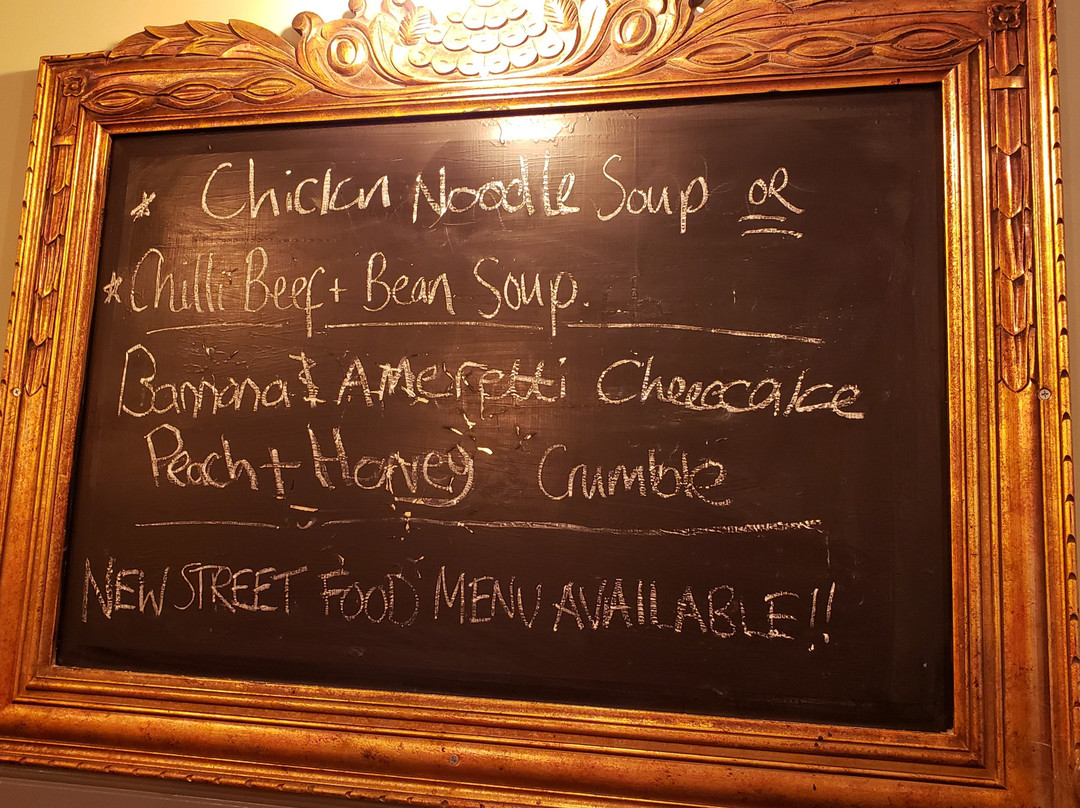 * Chickn Noodle Soup OR
* Chilli Beef + Bean Soup.
Bannana & Amerettti Cheeecake
Peach + Honey Crumble
NEW STREET FOOD MENU AVAILABLE!!